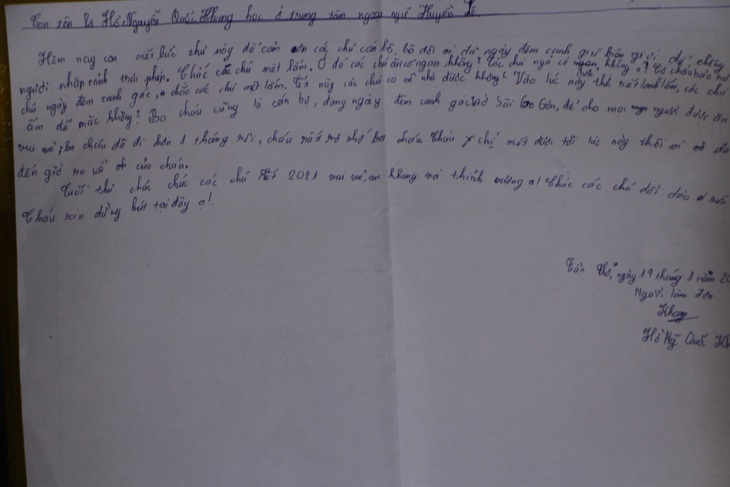 Con tên là Hồ Nguyễn Quốc Khang học ở trung tâm ngoại ngữ Huyền Lê.
Hôm nay con viết bức thư này để cảm ơn các chú cán bộ, bộ đội vì đã ngày đêm canh giữ biên giới để chống
người nhập cảnh trái phép. Chắc các chú mệt lắm. Ở đó các chú ăn có ngon không? Các chú ngủ có ngon không ạ? Cô cháu bảo các
chú ngày đêm canh gác, chắc các chú mệt lắm. Tết này các chú có về nhà được không? Vào lúc này trời rất lạnh lắm, các chú
ấm để mặc không? Ba cháu cũng là cán bộ, đang ngày đêm canh gác ở Sài Gòn, để cho mọi người được ăn
vui vẻ, ba cháu đã đi hơn 1 tháng rồi, cháu rất nhớ ba cháu lúc này thôi
đến giờ ra về của cháu.
Cuối thư cháu chúc các chú tết 2021 vui vẻ, an khang và thịnh vượng ạ! Chúc các chú dồi dào
Cháu xin dừng bút tại đây ạ!.
ngày 19 tháng 1 năm 20
Người làm đơn
Khang
Hồ Ng Quốc